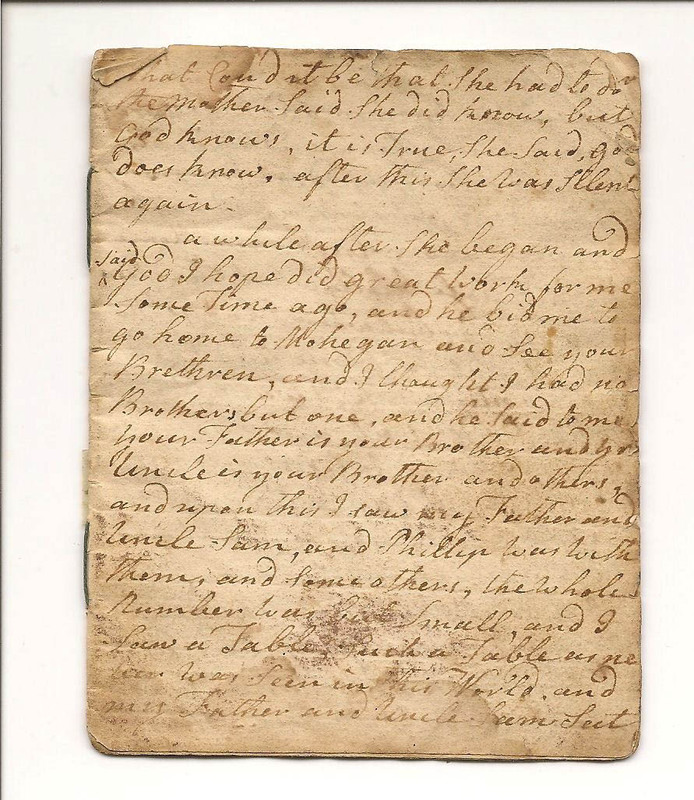 what Cou'd it be that She had to do
the mother Said She did know, but
God knows, it is True, She Said, god
does know, after this She was Silent
again
a while after She began and
Said
God I hope did great work for me
Some Time ago, and he bid me to
go home to Mohegan and See your
Brethren, and I thought I had no
Brothers but one, and he Said to me
your Father is your Brother and yor
Uncle is your Brother and others,
and upon this I saw my Father and
Uncle Sam, and Phillip was with
them, and Some others, the whole
Number was but Small, and I
Saw a Table, Such a Table as ne
ver was Seen in this World. and
my Father and Uncle Sam Seit